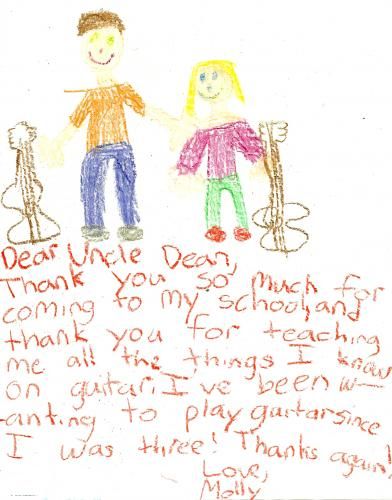 Dear Uncle Dean,
Thank you so much for
coming to my school, and
thank you for teaching
me all the things I know
on guitar. I've been w-
anting to play guitar since
I was three! Thanks again!
Love,
Molly